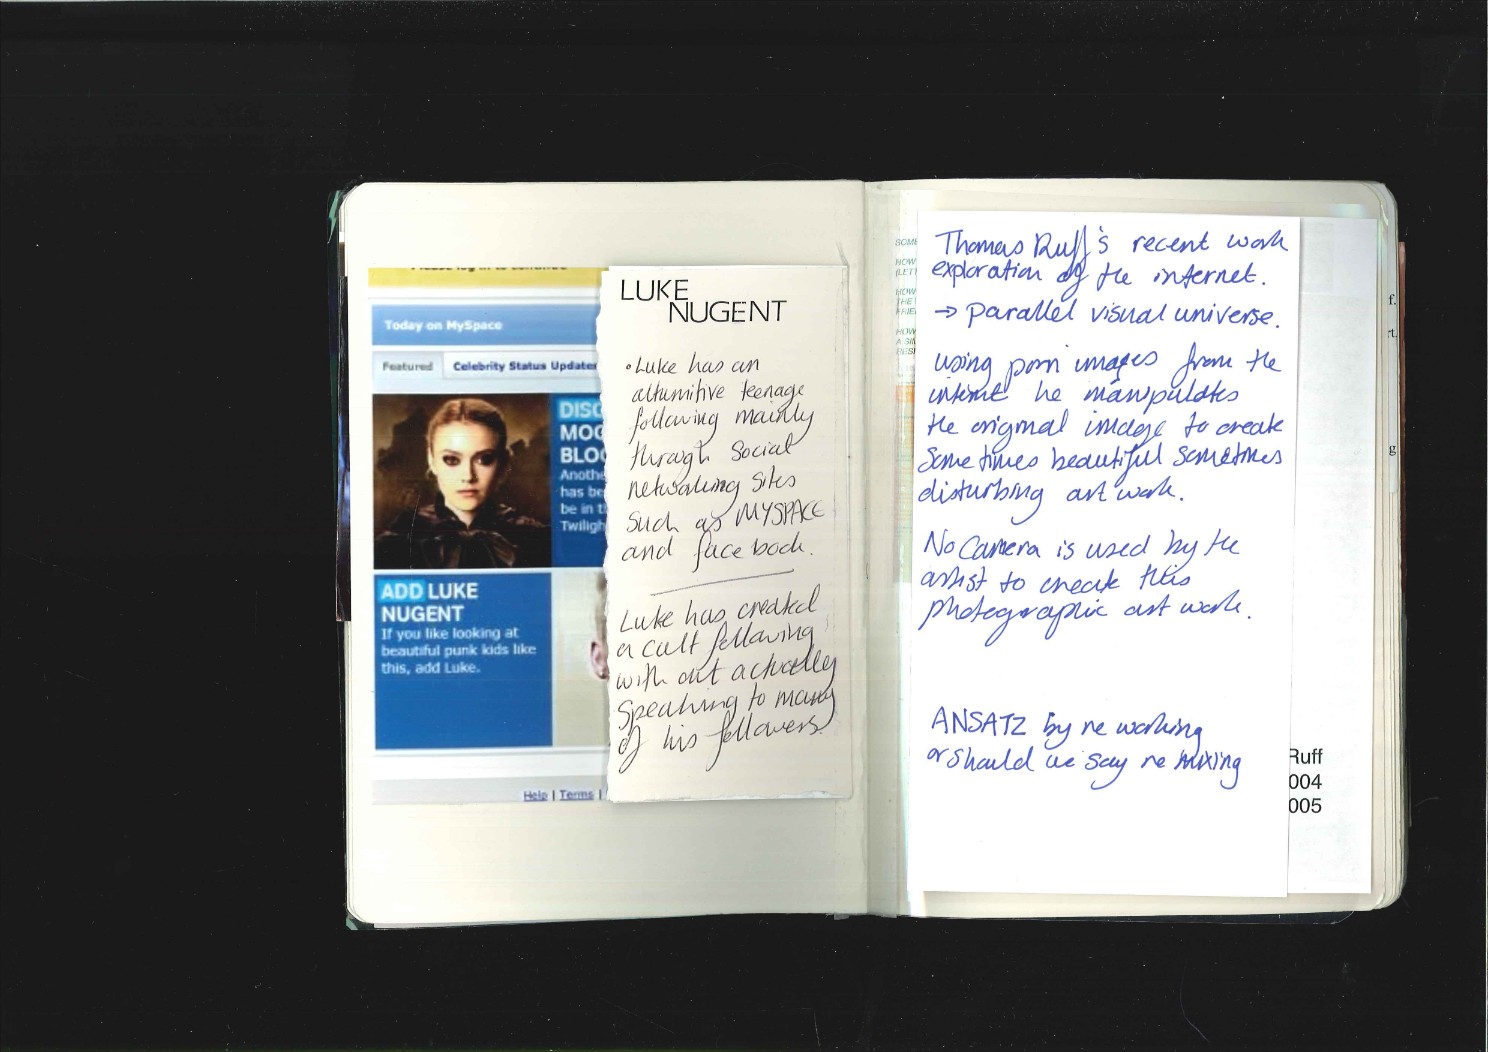 Please log in to continue
Today on MySpace
Featured
Celebrity Status Updates
DISC
MOO
BLOO
Anothe
has be
be in t
Twiligh
ADD LUKE
NUGENT
If you like looking at
beautiful punk kids like
this, add Luke.
Help | Terms |
LUKE
NUGENT
• Luke has an
alturnitive teenage
following mainly
through Social
networking sites
such as MYSPACE
and face book.
Luke has created
a cult following
with out actually
speaking to many
of his followers.
SOME
HOW
(LETT
HOW
THE
FRIE
HOW
A SI
BES
Thomas Ruff's recent work
exploration of the internet.
→ parallel visual universe.
using porn images from the
internet he manipulates
the original image to create
Sometimes beautiful sometimes
disturbing art work.
No Camera is used by the
artist to create this
photographic art work.
ANSATZ by re working
or should we say re mixing
f.
t.
g
Ruff
004
005